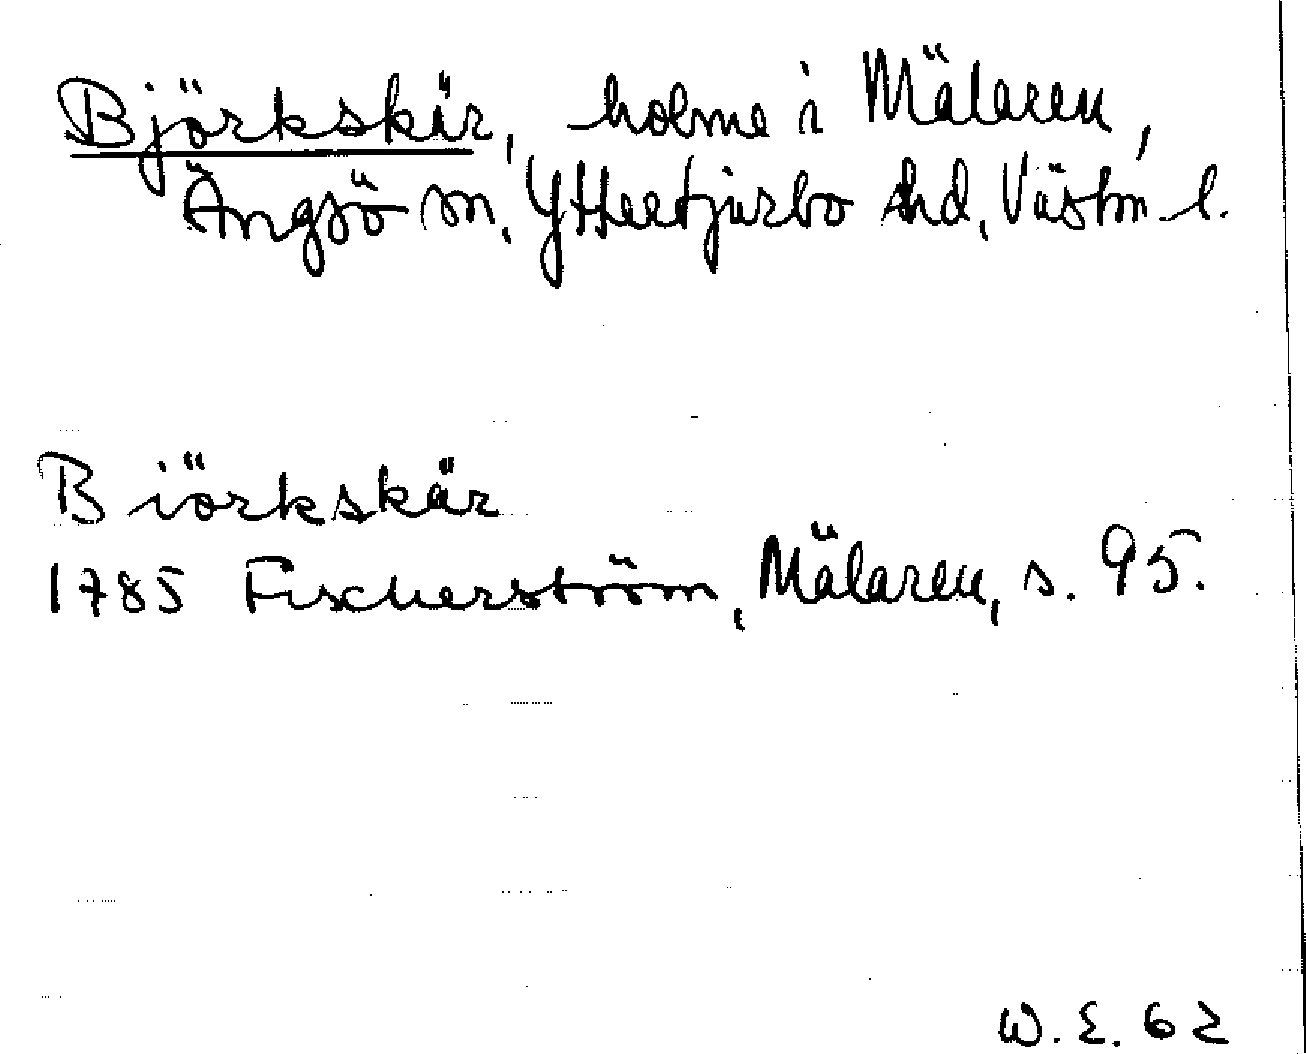 Björkskär, holme i Mälaren,
Ängsö sn, Yttertjurbo hd, Västm l.
Biörkskär
1785 Fischerström, Mälaren, s. 95.
W. E. 62